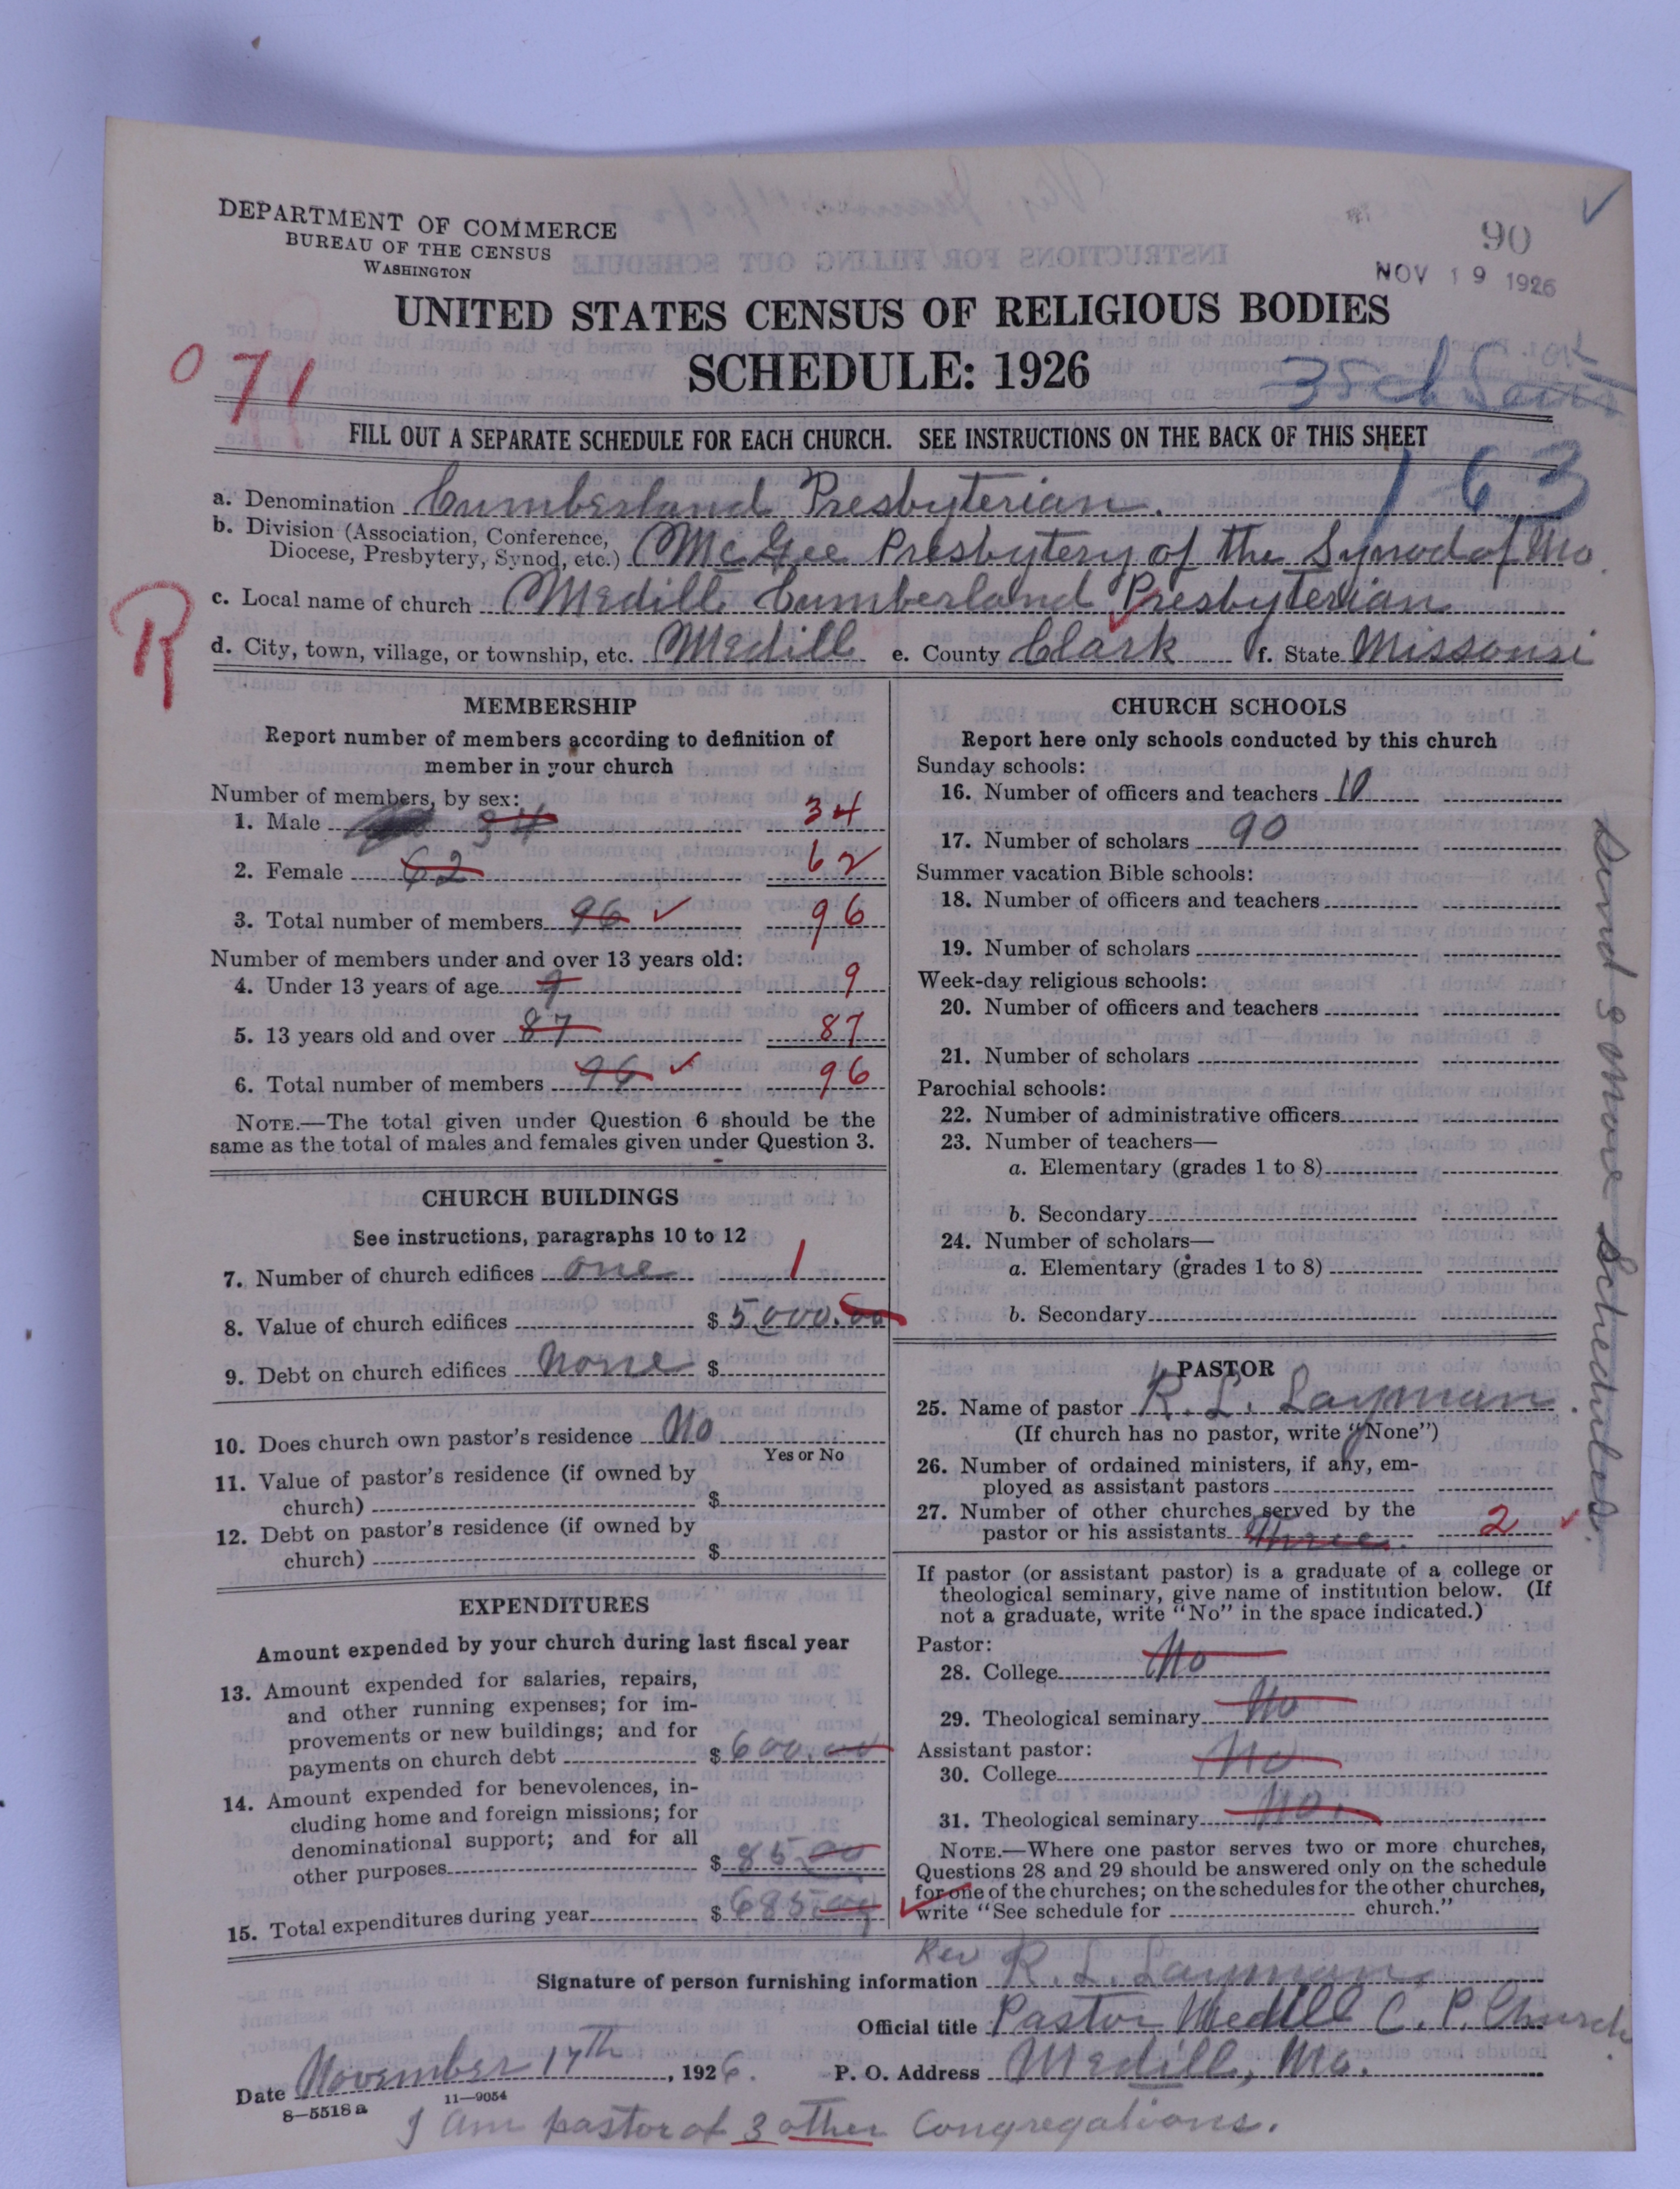 DEPARTMENT OF COMMERCE
BUREAU OF THE CENSUS
WASHINGTON
90
NOV 19 1926
UNITED STATES CENSUS OF RELIGIOUS BODIES
SCHEDULE: 1926
071
3 Sch Sent
OK
FILL OUT A SEPARATE SCHEDULE FOR EACH CHURCH. SEE INSTRUCTIONS ON THE BACK OF THIS SHEET
1-63
a. Denomination Cumberland Presbyterian.
b. Division (Association, Conference,
Diocese, Presbytery, Synod, etc.) McGee Presbytery of the Synod of Mo.
R
c. Local name of church Medill Cumberland Presbyterian
d. City, town, village, or township, etc. Medill e. County Clark f. State Missouri
MEMBERSHIP
Report number of members according to definition of
member in your church
Number of members, by sex:
1. Male 34 34
2. Female 62 62
3. Total number of members 96 ✓ 96
Number of members under and over 13 years old:
4. Under 13 years of age 9 9
5. 13 years old and over 87 87
6. Total number of members 96 ✓ 96
NOTE.—The total given under Question 6 should be the
same as the total of males and females given under Question 3.
CHURCH BUILDINGS
See instructions, paragraphs 10 to 12
7. Number of church edifices one 1
8. Value of church edifices $ 5000.00
9. Debt on church edifices None $
10. Does church own pastor's residence No
Yes or No
11. Value of pastor's residence (if owned by
church) $
12. Debt on pastor's residence (if owned by
church) $
EXPENDITURES
Amount expended by your church during last fiscal year
13. Amount expended for salaries, repairs,
and other running expenses; for im-
provements or new buildings; and for
payments on church debt $ 600.00
14. Amount expended for benevolences, in-
cluding home and foreign missions; for
denominational support; and for all
other purposes $ 85.00
15. Total expenditures during year $ 685.00
CHURCH SCHOOLS
Report here only schools conducted by this church
Sunday schools:
16. Number of officers and teachers 10
17. Number of scholars 90
Summer vacation Bible schools:
18. Number of officers and teachers
19. Number of scholars
Week-day religious schools:
20. Number of officers and teachers
21. Number of scholars
Parochial schools:
22. Number of administrative officers
23. Number of teachers—
a. Elementary (grades 1 to 8)
b. Secondary
24. Number of scholars—
a. Elementary (grades 1 to 8)
b. Secondary
PASTOR
25. Name of pastor R. L. Layman
(If church has no pastor, write "None")
26. Number of ordained ministers, if any, em-
ployed as assistant pastors
27. Number of other churches served by the
pastor or his assistants three. 2 ✓
If pastor (or assistant pastor) is a graduate of a college or
theological seminary, give name of institution below. (If
not a graduate, write "No" in the space indicated.)
Pastor:
28. College No
29. Theological seminary No
Assistant pastor:
30. College No
31. Theological seminary No.
NOTE.—Where one pastor serves two or more churches,
Questions 28 and 29 should be answered only on the schedule
for one of the churches; on the schedules for the other churches,
write "See schedule for church."
Send 3 more schedules.
Signature of person furnishing information Rev R. L. Layman
Official title Pastor Medill C. P. Church.
Date November 17th, 1926. P. O. Address Medill, Mo.
8-5518a 11-9054
I am pastor of 3 other Congregations.